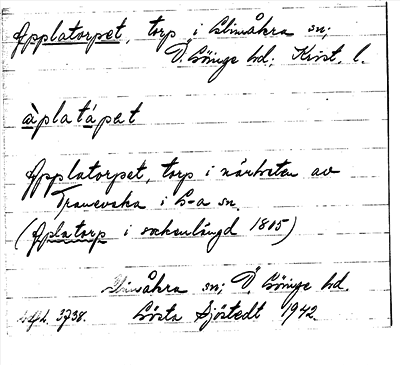 Applatorpet, torp i Glimåkra sn;
Ö. Göinge hd; Krist. l.
àplatápat
Applatorpet, torp i närheten av
Tranevska i G-a sn.
(Aplatorp i sockenlängd 1805)
Glimåkra sn; Ö. Göinge hd.
3738. Gösta Sjöstedt 1942